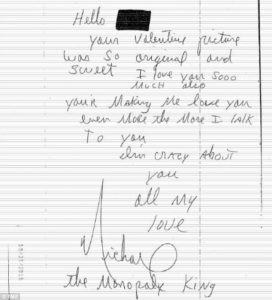 Hello
your Valentine picture
was so original and
sweet I love you sooo
much also
you're Making Me love you
even More the More I talk
To you
I'm crazy About
you
all my
love
Michael
the Monopoly King